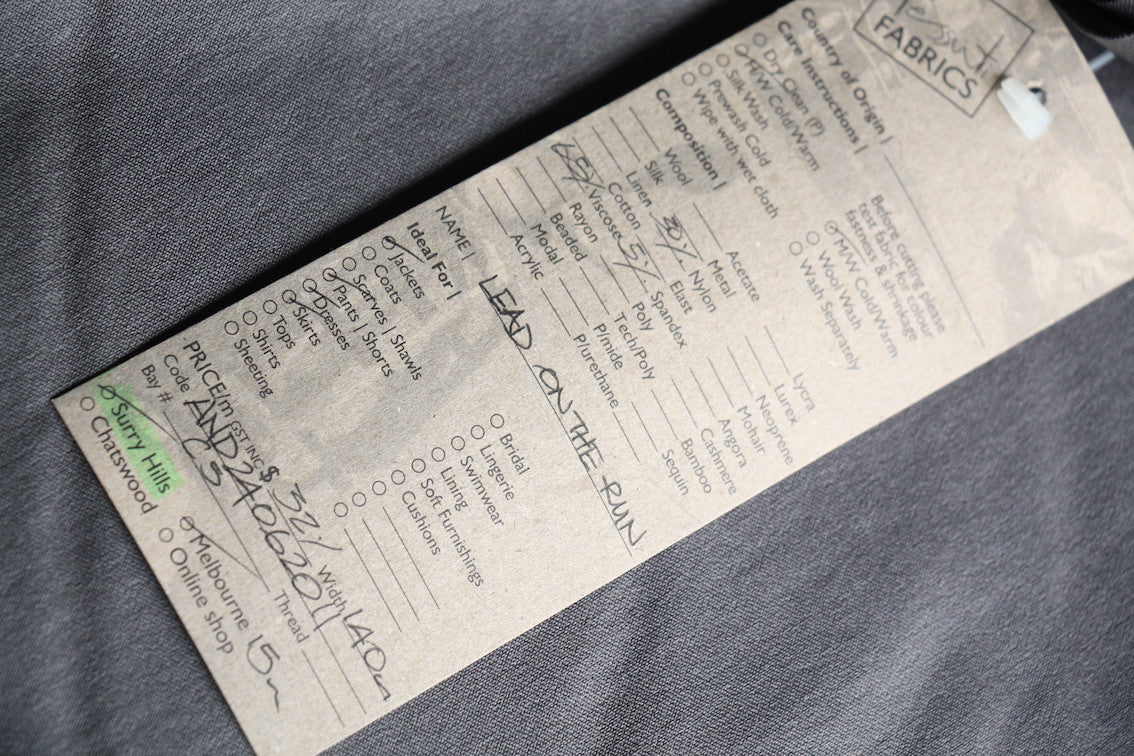 FABRICS
Country of Origin |
Care Instructions |
Dry Clean (P)
H/W Cold/Warm
Silk Wash
Prewash Cold
Wipe with wet cloth
Before cutting please
test fabric for colour
fastness & shrinkage
M/W Cold/Warm
Wool Wash
Wash Separately
Composition |
Wool
Silk
Linen
Cotton
65% Viscose
Rayon
Beaded
Modal
Acrylic
Acetate
Metal
30% Nylon
Elast
5% Spandex
Poly
Tech/Poly
P/mide
P/urethane
Lycra
Lurex
Neoprene
Mohair
Angora
Cashmere
Bamboo
Sequin
NAME | LEAD ON THE RUN
Ideal For |
Jackets
Coats
Scarves | Shawls
Pants | Shorts
Dresses
Skirts
Tops
Shirts
Sheeting
Bridal
Lingerie
Swimwear
Lining
Soft Furnishings
Cushions
PRICE/m GST INC $ 32 Width 140
Code AND24062011
Bay # C3 Thread
Surry Hills
Chatswood
Melbourne 15m
Online shop